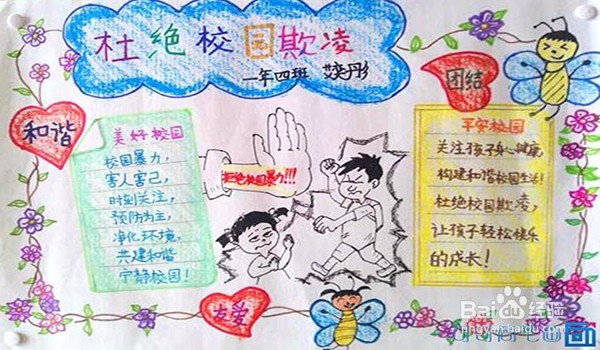 杜绝校园欺凌
一年四班
和谐
团结
美好校园
校园暴力，
害人害己，
时刻关注，
预防为主，
净化环境，
共建和谐
宁静校园！
拒绝校园暴力!!!
平安校园
关注孩子身心健康，
构建和谐校园生活！
杜绝校园欺凌，
让孩子轻松快乐
的成长！
友爱
Baidu经验
jingyan.baidu.com